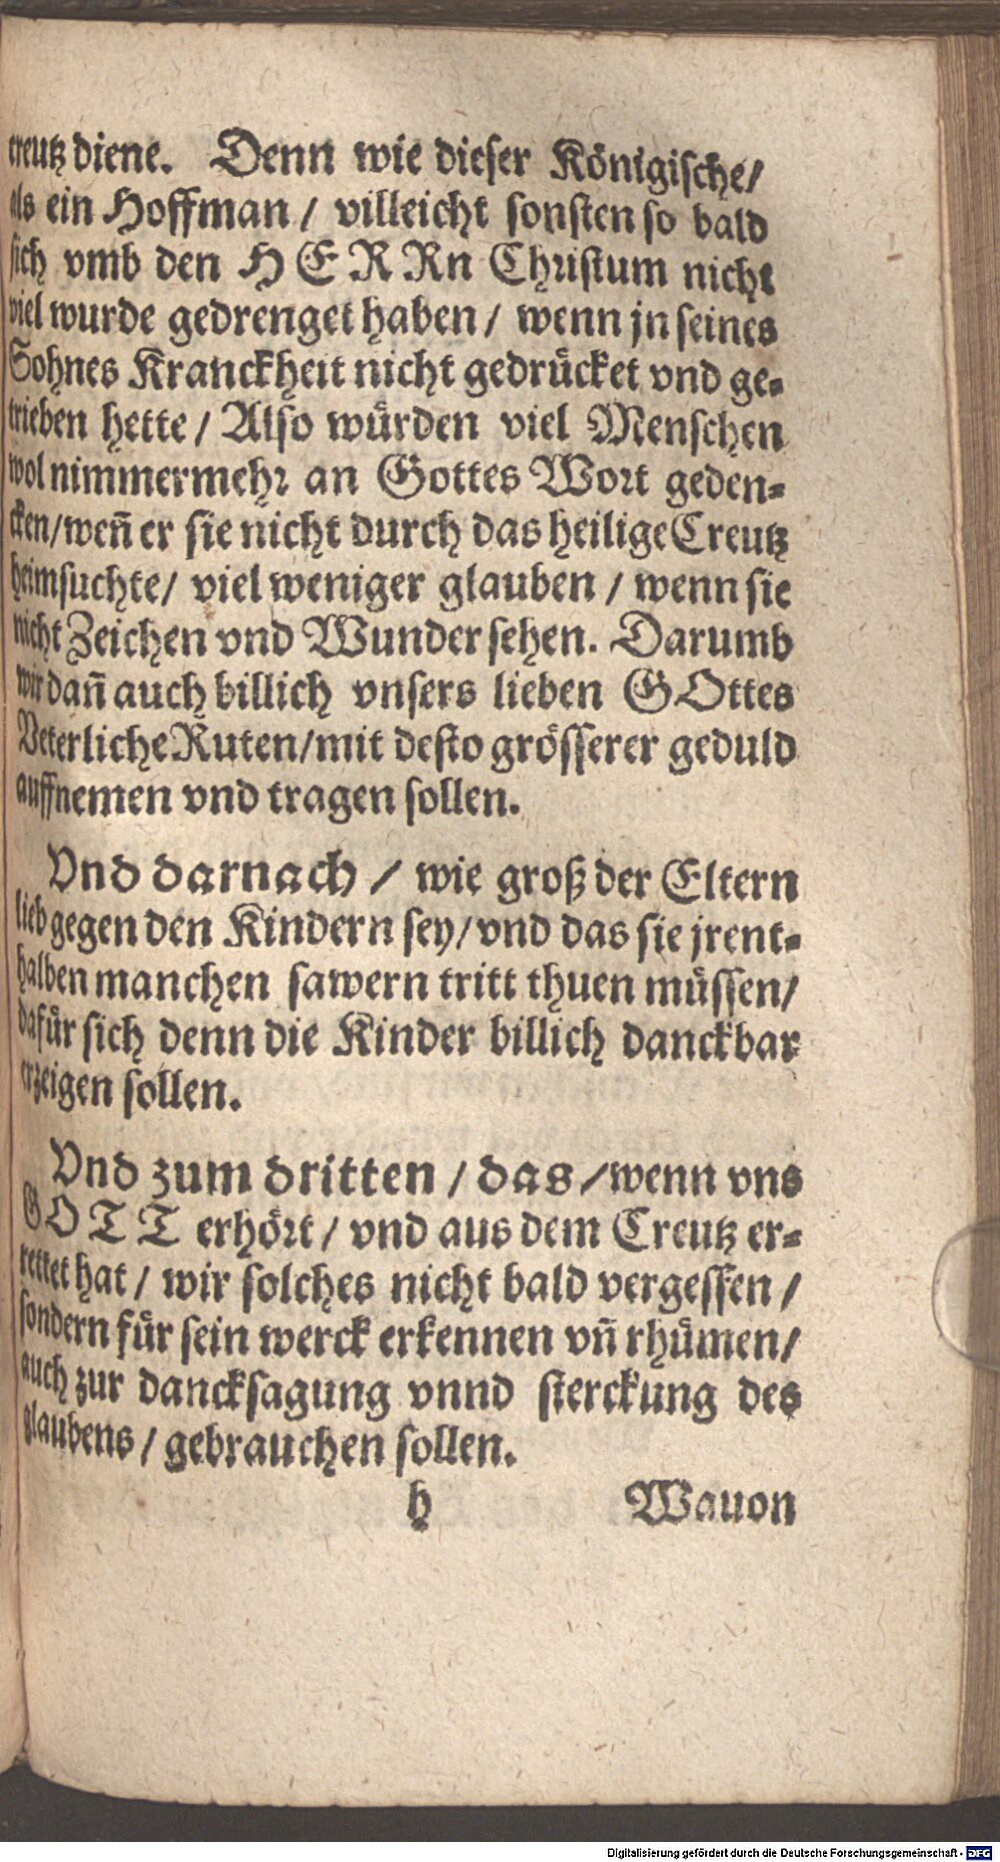 creutz diene. Denn wie dieser Königische/
als ein Hoffman / villeicht sonsten so bald
sich vmb den HERRn Christum nicht
viel wurde gedrenget haben / wenn jn seines
Sohnes Kranckheit nicht gedrücket vnd ge-
trieben hette / Also würden viel Menschen
wol nimmermehr an Gottes Wort geden-
cken/weñ er sie nicht durch das heilige Creutz
heimsuchte/ viel weniger glauben / wenn sie
nicht Zeichen vnd Wunder sehen. Darumb
wir dañ auch billich vnsers lieben GOttes
Veterliche Ruten/mit desto grösserer geduld
auffnemen vnd tragen sollen.
Vnd darnach / wie groß der Eltern
lieb gegen den Kindern sey/vnd das sie jrent-
halben manchen sawern tritt thuen müssen/
dafür sich denn die Kinder billich danckbar
erzeigen sollen.
Vnd zum dritten / das /wenn vns
GOTT erhört / vnd aus dem Creutz er-
rettet hat / wir solches nicht bald vergessen /
sondern für sein werck erkennen vñ rhümen/
auch zur dancksagung vnnd sterckung des
glaubens / gebrauchen sollen.
h Wauon
Digitalisierung gefördert durch die Deutsche Forschungsgemeinschaft - DFG